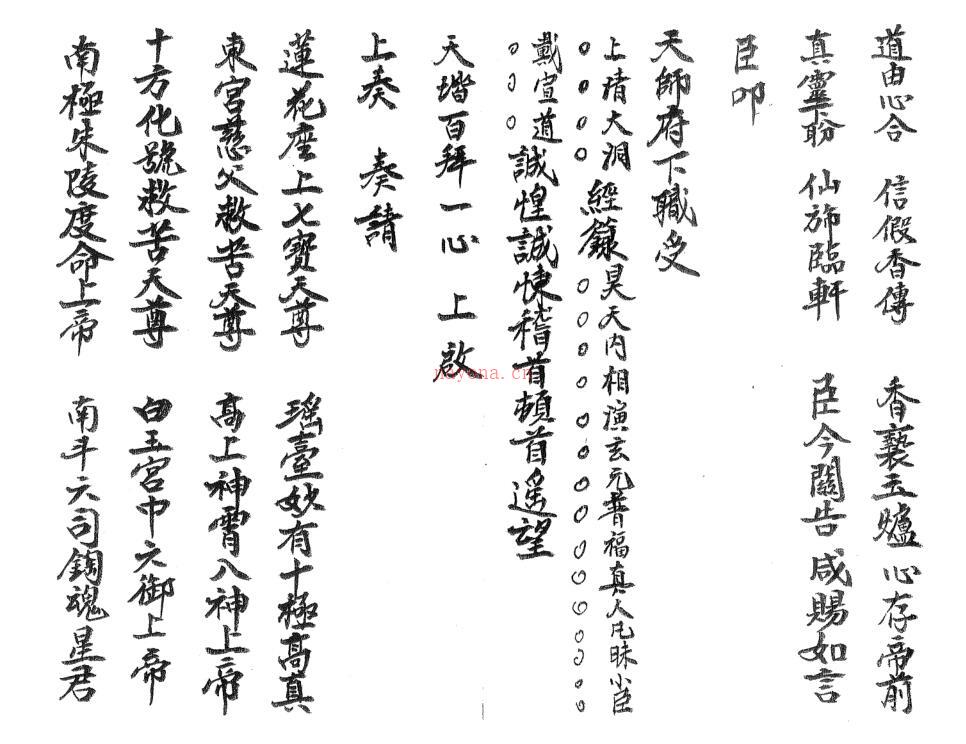 道由心合 信假香傳 香爇玉爐 心存帝前
真靈下盼 仙斾臨軒 臣今關告 咸賜如言
臣叩
天師府下職受
上清大洞經籙昊天内相演玄元普福真人凡昧小臣
戴宣道誠惶誠悚稽首頓首遥望
天堦百拜一心 上啟
上奏 奏請
蓮花座上七寶天尊 瑶臺妙有十極高真
東宮慈父救苦天尊 高上神霄八神上帝
十方化號救苦天尊 白玉宮中六御上帝
南極朱陵度命上帝 南斗六司鍧魂星君
nayona.cn